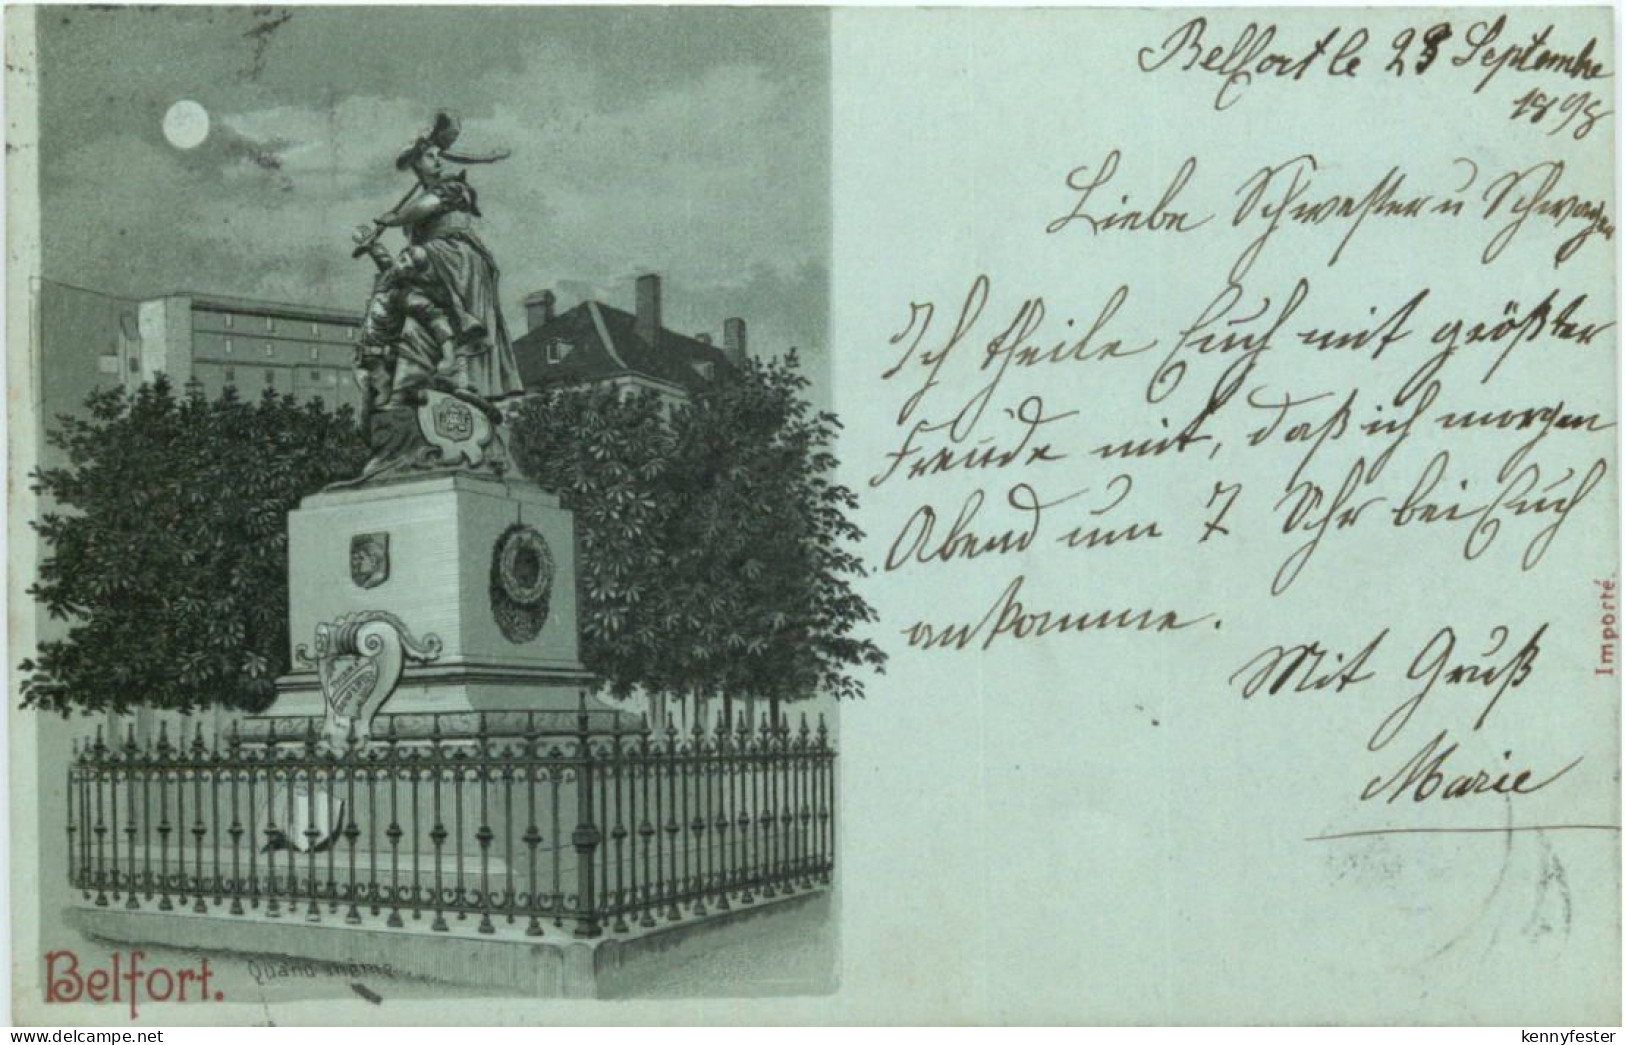 Belfort le 23 Septembre
1898
Liebe Schwester u Schwager
Ich theile Euch mit größter
Freude mit, daß ich morgen
Abend um 7 Uhr bei Euch
ankomme.
Mit Gruß
Marie
Importé.
Belfort.
Quand même
www.delcampe.net
kennyfester